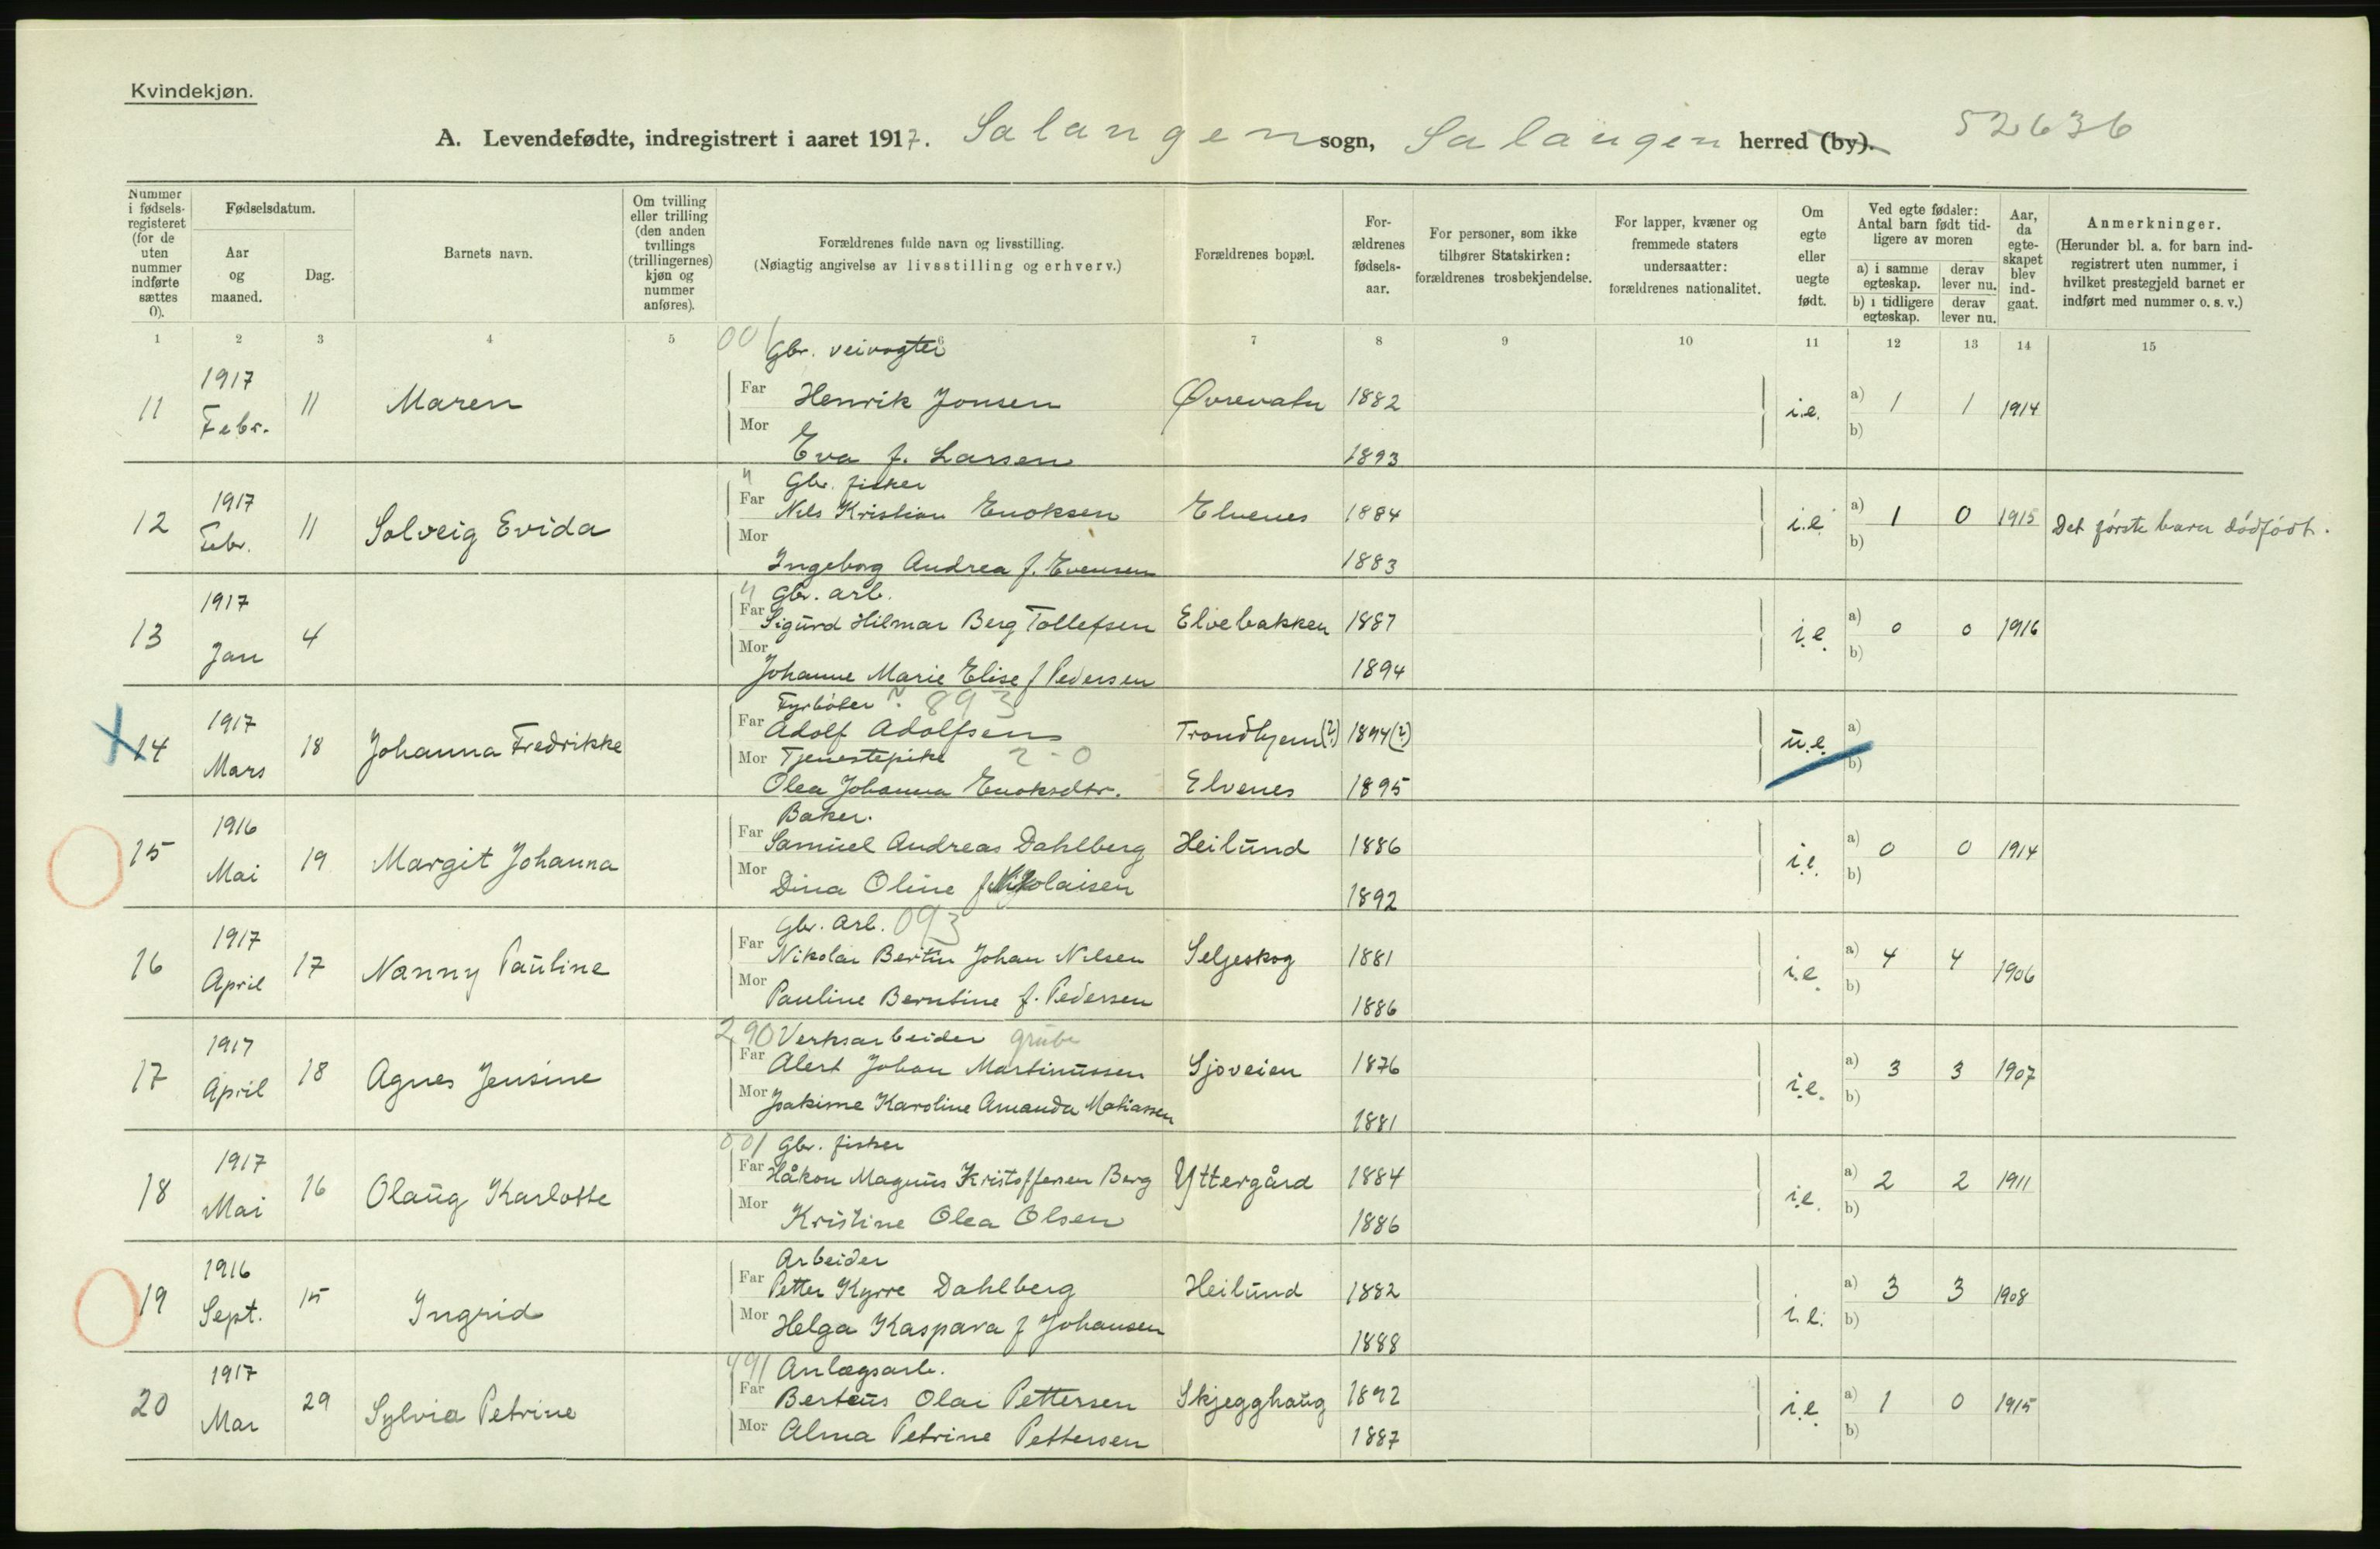 Kvindekjøn.
A. Levendefødte, indregistrert i aaret 1917. Salangen sogn, Salangen herred (by). 52636
Nummer i fødsels-registeret (for de uten nummer indførte sættes 0).
Fødselsdatum.
Aar og maaned.
Dag.
Barnets navn.
Om tvilling eller trilling (den anden tvillings (trillingernes) kjøn og nummer anføres).
Forældrenes fulde navn og livsstilling.
(Nøiagtig angivelse av livsstilling og erhverv.)
Forældrenes bopæl.
For-ældrenes fødsels-aar.
For personer, som ikke tilhører Statskirken: forældrenes trosbekjendelse.
For lapper, kvæner og fremmede staters undersaatter: forældrenes nationalitet.
Om egte eller uegte født.
Ved egte fødsler: Antal barn født tid-ligere av moren
a) i samme egteskap. derav lever nu.
b) i tidligere egteskap. derav lever nu.
Aar, da egte-skapet blev ind-gaat.
Anmerkninger.
(Herunder bl. a. for barn ind-registrert uten nummer, i hvilket prestegjeld barnet er indført med nummer o. s. v.)
1 2 3 4 5 6 7 8 9 10 11 12 13 14 15
001 Gbr. veivogter
11 1917 Febr. 11 Maren Far Henrik Jonsen Øvrevatn 1882 i.e. a) 1 1 1914
Mor Eva f. Larsen 1893 b)
" Gbr. fisker
12 1917 Febr. 11 Solveig Evida Far Nils Kristian Enoksen Elvenes 1884 i.e. a) 1 0 1915 Det første barn dødfødt.
Mor Ingeborg Andrea f. Evensen 1883 b)
" Gbr. arb.
13 1917 Jan 4 Far Sigurd Hilmar Berg Tollefsen Elvebakken 1887 i.e. a) 0 0 1916
Mor Johanne Marie Elise f Pedersen 1894 b)
Fyrbøter ? 893
14 1917 Mars 18 Johanna Fredrikke Far Adolf Adolfsen Trondhjem(?) 1894(?) u.e. a)
Mor Tjenestepike 2-0
Olea Johanna Enoksdtr. Elvenes 1895 b)
Baker.
15 1916 Mai 19 Margit Johanna Far Samuel Andreas Dahlberg Heilund 1886 i.e. a) 0 0 1914
Mor Dina Oline f Nikolaisen 1892 b)
Gbr. Arb. 093
16 1917 April 17 Nanny Pauline Far Nikolai Bertin Johan Nilsen Seljeskog 1881 i.e. a) 4 4 1906
Mor Pauline Berntine f. Pedersen 1886 b)
290 Verksarbeider grube
17 1917 April 18 Agnes Jensine Far Alert Johan Martinussen Sjøveien 1876 i.e. a) 3 3 1907
Mor Joakime Karoline Amanda Matiassen 1881 b)
001 Gbr. fisker
18 1917 Mai 16 Olaug Karlotte Far Håkon Magnus Kristoffersen Berg Yttergård 1884 i.e. a) 2 2 1911
Mor Kristine Olea Olsen 1886 b)
Arbeider
19 1916 Sept. 15 Ingrid Far Petter Kyrre Dahlberg Heilund 1882 i.e. a) 3 3 1908
Mor Helga Kaspara f Johansen 1888 b)
491 Anlægsarb.
20 1917 Mar 29 Sylvia Petrine Far Berteus Olai Pettersen Skjegghaug 1892 i.e. a) 1 0 1915
Mor Alma Petrine Pettersen 1887 b)